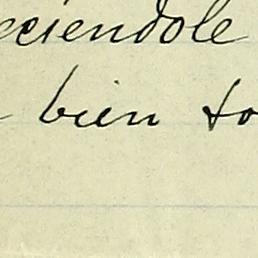 eciendole
bien to